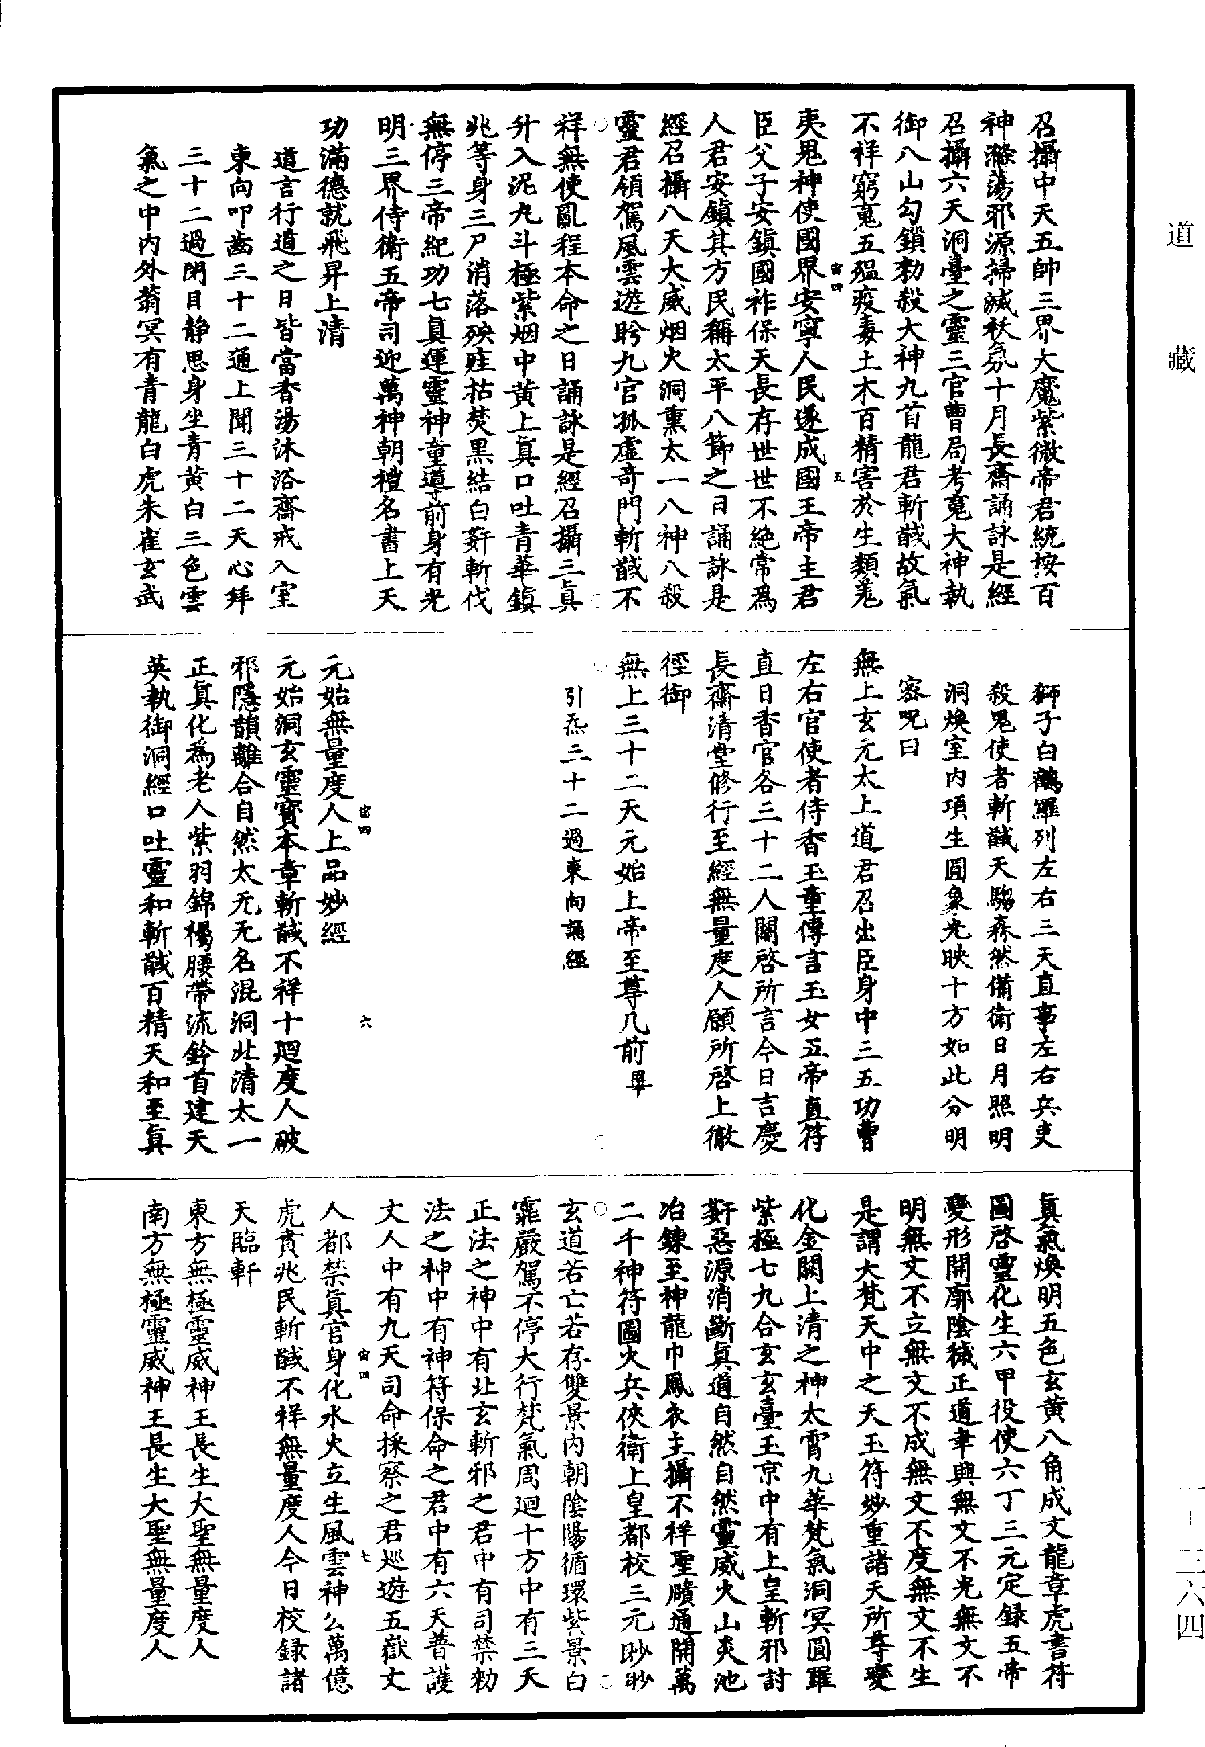 道藏
召攝中天五帥三界大魔紫微帝君統按百
神滌蕩邪源掃滅秋氛十月長齋誦詠是經
召攝六天洞臺之靈三官曹局考鬼大神執
御八山勾鎖勑殺大神九首龍君斬馘故氣
不祥窮鬼五瘟疫毒土木百精害於生類羌
夷鬼神使國界安寧人民遂成國王帝主君
臣父子安鎮國祚保天長存世世不絕常為
人君安鎮其方民稱太平八節之日誦詠是
經召攝八天大威烟火洞熏太一八神八殺
靈君領駕風雲遊眄九官孤虛奇門斬馘不
祥無使亂程本命之日誦詠是經召攝三真
升入泥丸斗極紫烟中黃上真口吐青華鎮
兆等身三尸消落殃尪枯焚黑結白姧斬伐
無停三帝紀功七真運靈神童導前身有光
明三界侍衛五帝司迎萬神朝禮名書上天
功滿德就飛昇上清
道言行道之日皆當香湯沐浴齋戒入室
東向叩齒三十二通上聞三十二天心拜
三十二過閉目靜思身坐青黃白三色雲
氣之中內外蓊冥有青龍白虎朱雀玄武
獅子白鶴羅列左右三天直事左右兵吏
殺鬼使者斬馘天騶森然備衛日月照明
洞煥室內項生圓象光映十方如此分明
密呪曰
無上玄元太上道君召出臣身中三五功曹
左右官使者侍香玉童傳言玉女五帝直符
直日香官各三十二人關啓所言今日吉慶
長齋清堂修行至經無量度人願所啓上徹
徑御
無上三十二天元始上帝至尊几前畢
引炁三十二過東向誦經
元始無量度人上品妙經
元始洞玄靈寶本章斬馘不祥十迴度人破
邪隱韻離合自然太无无名混洞北清太一
正真化為老人紫羽錦褐腰帶流鈴首建天
英執御洞經口吐靈和斬馘百精天和至真
真氣煥明五色玄黃八角成文龍章虎書符
圖啓靈化生六甲役使六丁三元定錄五帝
變形開廓陰穢正道聿興無文不光無文不
明無文不立無文不成無文不度無文不生
是謂大梵天中之天玉符紗重諸天所尊變
化金闕上清之神太霄九華梵氣洞冥圓羅
紫極七九合玄玄臺玉京中有上皇斬邪討
姧惡源消斷真道自然自然靈威火山炎池
冶鍊至神龍巾鳳衣主攝不祥聖牘通開萬
二千神符圖火兵俠衛上皇都校三元眇眇
玄道若亡若存雙景內朝陰陽循環紫景白
霏嚴駕不停大行梵氣周迴十方中有三天
正法之神中有北玄斬邪之君中有司禁勑
法之神中有神符保命之君中有六天普護
文人中有九天司命採察之君巡遊五嶽丈
人都禁真官身化水火立生風雲神公萬億
虎賁兆民斬馘不祥無量度人今日校錄諸
天臨軒
東方無極靈威神王長生大聖無量度人
南方無極靈威神王長生大聖無量度人
一-三六四